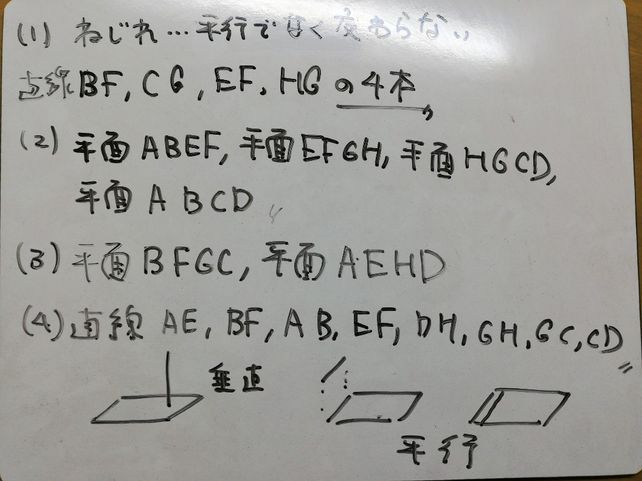 (1) ねじれ…平行ではなく交わらない
直線BF, CG, EF, HGの4本
(2) 平面ABEF, 平面EFGH, 平面HGCD,
平面ABCD〃
(3) 平面BFGC, 平面AEHD
(4) 直線AE, BF, AB, EF, DH, GH, GC, CD〃
垂直
平行